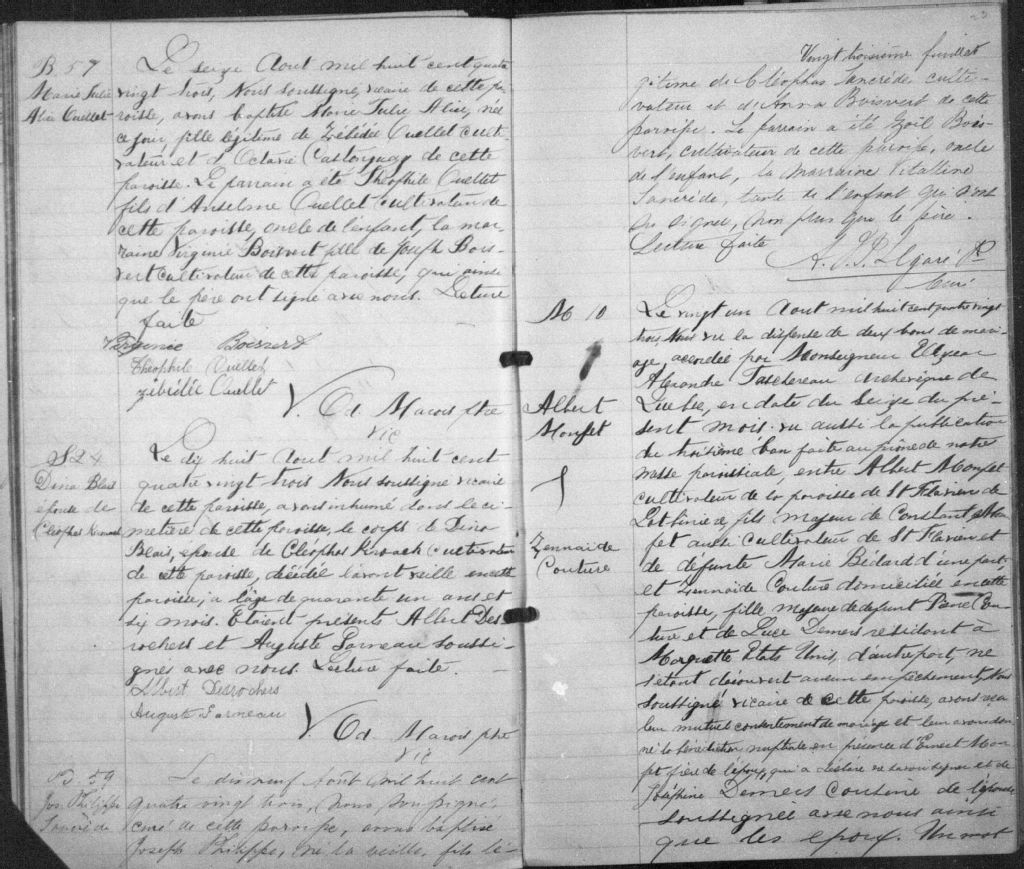 B 57
Marie Julie
Alice Ouellet
Le seize Aout mil huit cent quatre
vingt trois, Nous soussigné, vicaire de cette pa-
roisse, avons baptisé Marie Julie Alice, née
ce jour, fille légitime de Zébédée Ouellet culti-
vateur et d'Octavie Castonguay de cette
paroisse. Le parrain a été Théophile Ouellet
fils d'Anselme Ouellet cultivateur de
cette paroisse, oncle de l'enfant, la mar-
raine Virginie Boisvert fille de Joseph Bois-
vert cultivateur de cette paroisse, qui ainsi
que le père ont signé avec nous. Lecture
faite
Virginie Boisvert
Théophile Ouellet
Zébédée Ouellet
V. Od Marois ptre
Vic
S 24
Dina Blais
épouse de
Cléophas Kirouack
Le dix huit Aout mil huit cent
quatre vingt trois Nous soussigné vicaire
de cette paroisse, avons inhumé dans le ci-
metière de cette paroisse, le corps de Dina
Blais, épouse de Cléophas Kirouack cultivateur
de cette paroisse, décédée l'avant veille en cette
paroisse, a l'âge de quarante un ans et
six mois. Etaient présents Albert Des
rochers et Auguste Garneau soussi-
gnés avec nous. Lecture faite.
Albert Desrochers
Auguste Garneau
V. Od Marois ptre
Vic
B. 59
Jos. Philippe
Tancrède
Le dix neuf août mil huit cent
quatre vingt trois, Nous soussigné
curé de cette paroisse, avons baptisé
Joseph Philippe, né la veille, fils lé-
23
Vingt troisième feuillet
gitime de Cléophas Tancrède culti-
vateur et d'Anna Boisvert de cette
paroisse. Le parrain a été Zoïl Bois-
vert, cultivateur de cette paroisse, oncle
de l'enfant, la marraine Vitaline
Tancrède, tante de l'enfant qui n'ont
su signer, non plus que le père.
Lecture faite
Curé
M 10
Albert
Monfet
Zennaide
Couture
Le vingt un Aout mil huit cent quatre vingt
trois Nous vu la dispense de deux bans de mari-
age, accordée par Monseigneur Elzear
Alexandre Taschereau archevêque de
Québec, en date du seize du pré-
sent mois. vu aussi la publication
du troisième ban faite au prône de notre
messe paroissiale, entre Albert Monfet
cultivateur de la paroisse de St Flavien de
Lotbinière, fils majeur de Constant Mon
fet aussi cultivateur de St Flavien et
de défunte Marie Bédard d'une part;
et Zennaide Couture domiciliée en cette
paroisse, fille majeure de defunt Pierre Cou-
ture et de Luce Demers résidant à
Marquette Etats Unis, d'autre part, ne
s'étant découvert aucun empêchement, Nous
soussigné vicaire de cette paroisse, avons reçu
leur mutuel consentement de mariage et leur avons don
né la bénédiction nuptiale en présence d'Ernest Mon
fet frère de l'époux, qui a déclaré ne savoir signer et de
Joséphine Demers cousine de l'épouse
soussignée avec nous ainsi
que les epoux. Un mot